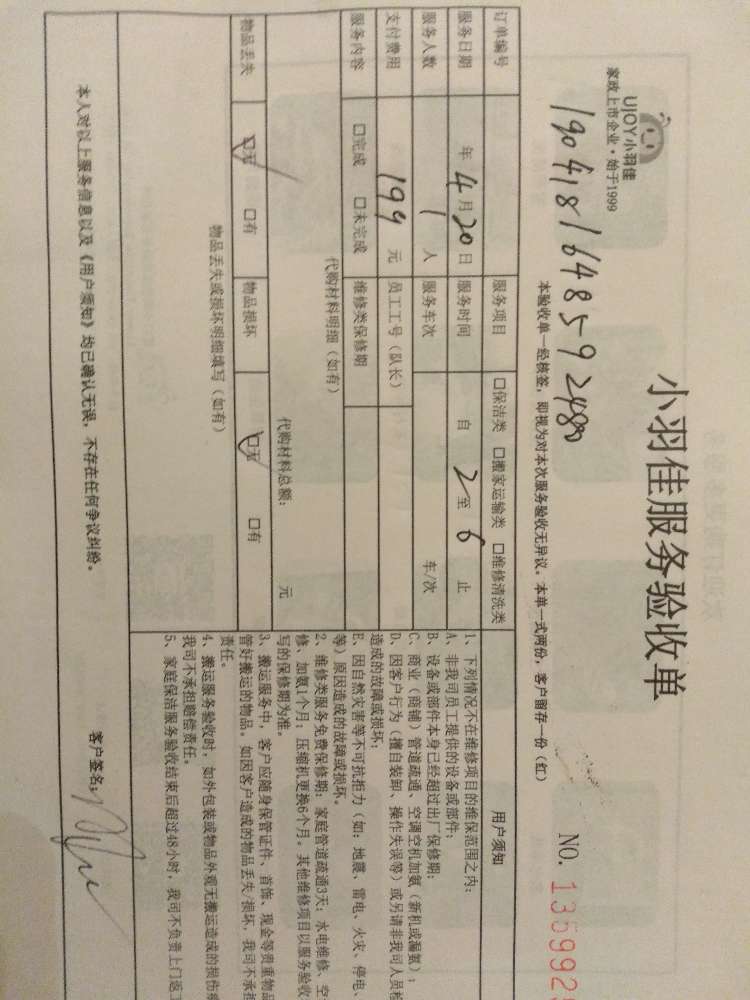 小羽佳服务验收单
UJOY小羽佳
家政上市企业·始于1999
NO. 1359925
本验收单一经核签，即视为对本次服务验收无异议。本单一式两份，客户留存一份（红）
订单编号 1904181648592480 服务项目 □保洁类 □搬家运输类 □维修清洗类
服务日期 年 4 月 20 日 服务时间 自 2 至 6 止
服务人数 1 人 服务车次 车/次
支付费用 199 元 员工工号（队长）
服务内容 □完成 □未完成 维修类保修期
代购材料明细（如有）
代购材料总额： 元
物品丢失 □无 □有 物品损坏 □无 □有
物品丢失或损坏明细填写（如有）
用户须知
1、下列情况不在维修项目的维保范围之内：
A、非我司员工提供的设备或部件；
B、设备或部件本身已经超过出厂保修期；
C、商业（商铺）管道疏通、空调空机加氨（新机或漏氨）；
D、因客户行为（擅自装卸、操作失误等）或另请非我司人员
造成的故障或损坏；
E、因自然灾害等不可抗拒力（如：地震、雷电、火灾、停电、
等）原因造成的故障或损坏。
2、维修类服务免费保修期：家庭管道疏通3天；水电维修、空
修、加氨1个月；压缩机更换6个月。其他维修项目以服务验收
写的保修期为准。
3、搬运服务中，客户应随身保管证件、首饰、现金等贵重物品
管好搬运的物品。如因客户造成的物品丢失/损坏，我司不承担
责任。
4、搬运服务验收时，如外包装或物品外观无搬运造成的损伤
我司不承担赔偿责任。
5、家庭保洁服务验收结束后超过48小时，我司不负责上门返工
本人对以上服务信息以及《用户须知》均已确认无误，不存在任何争议纠纷。
客户签名：